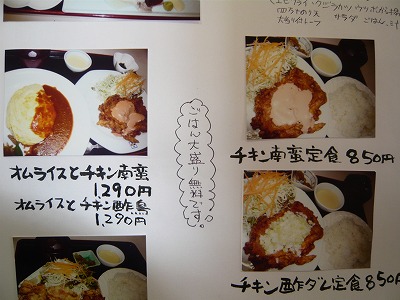 サラダ ごはん
オムライスとチキン南蛮
1,290円
オムライスとチキン酢鳥
1,290円
ごはん大盛り無料です。
チキン南蛮定食 850円
チキン酢ダレ定食 850円